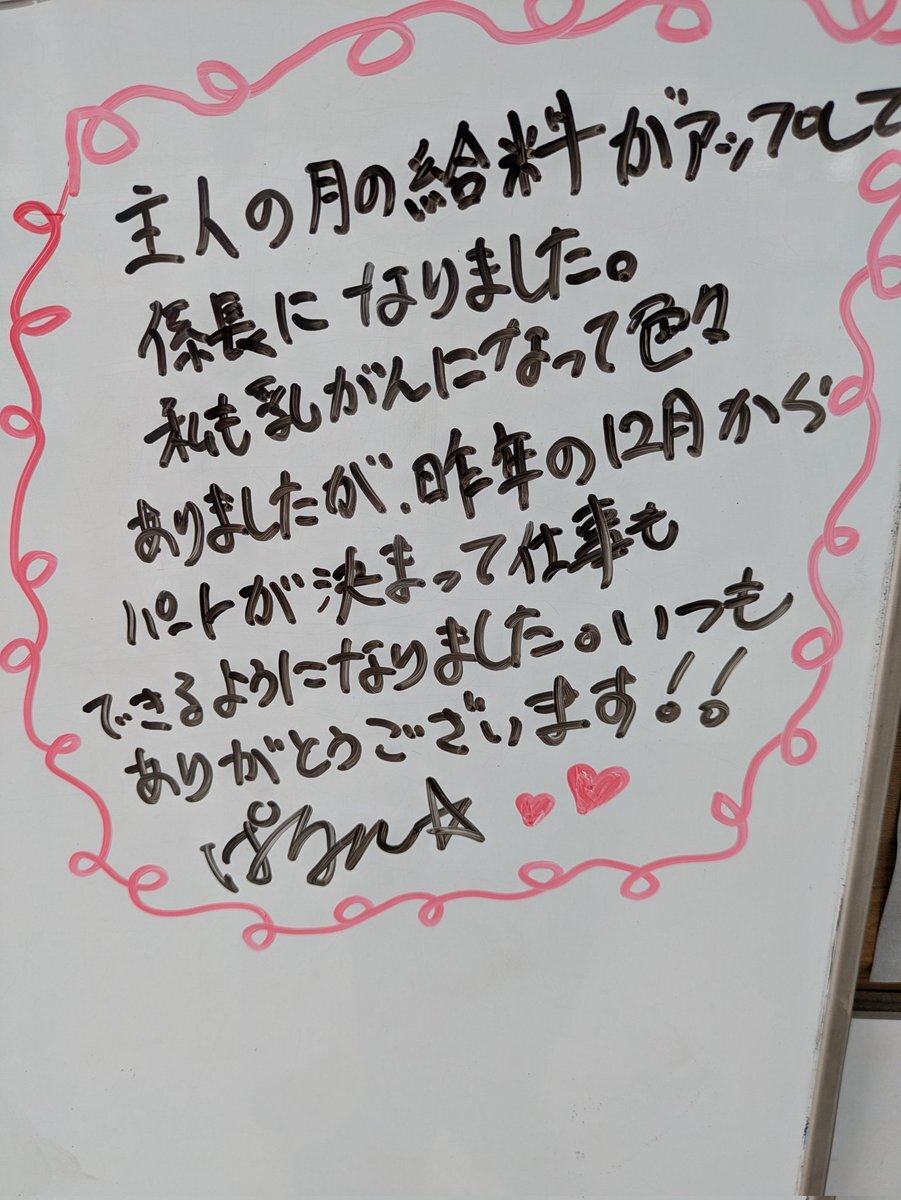 主人の月の給料がアップして
係長になりました。
私も乳がんになって色々
ありましたが、昨年の12月から
パートが決まって仕事も
できるようになりました。いつも
ありがとうございます!!